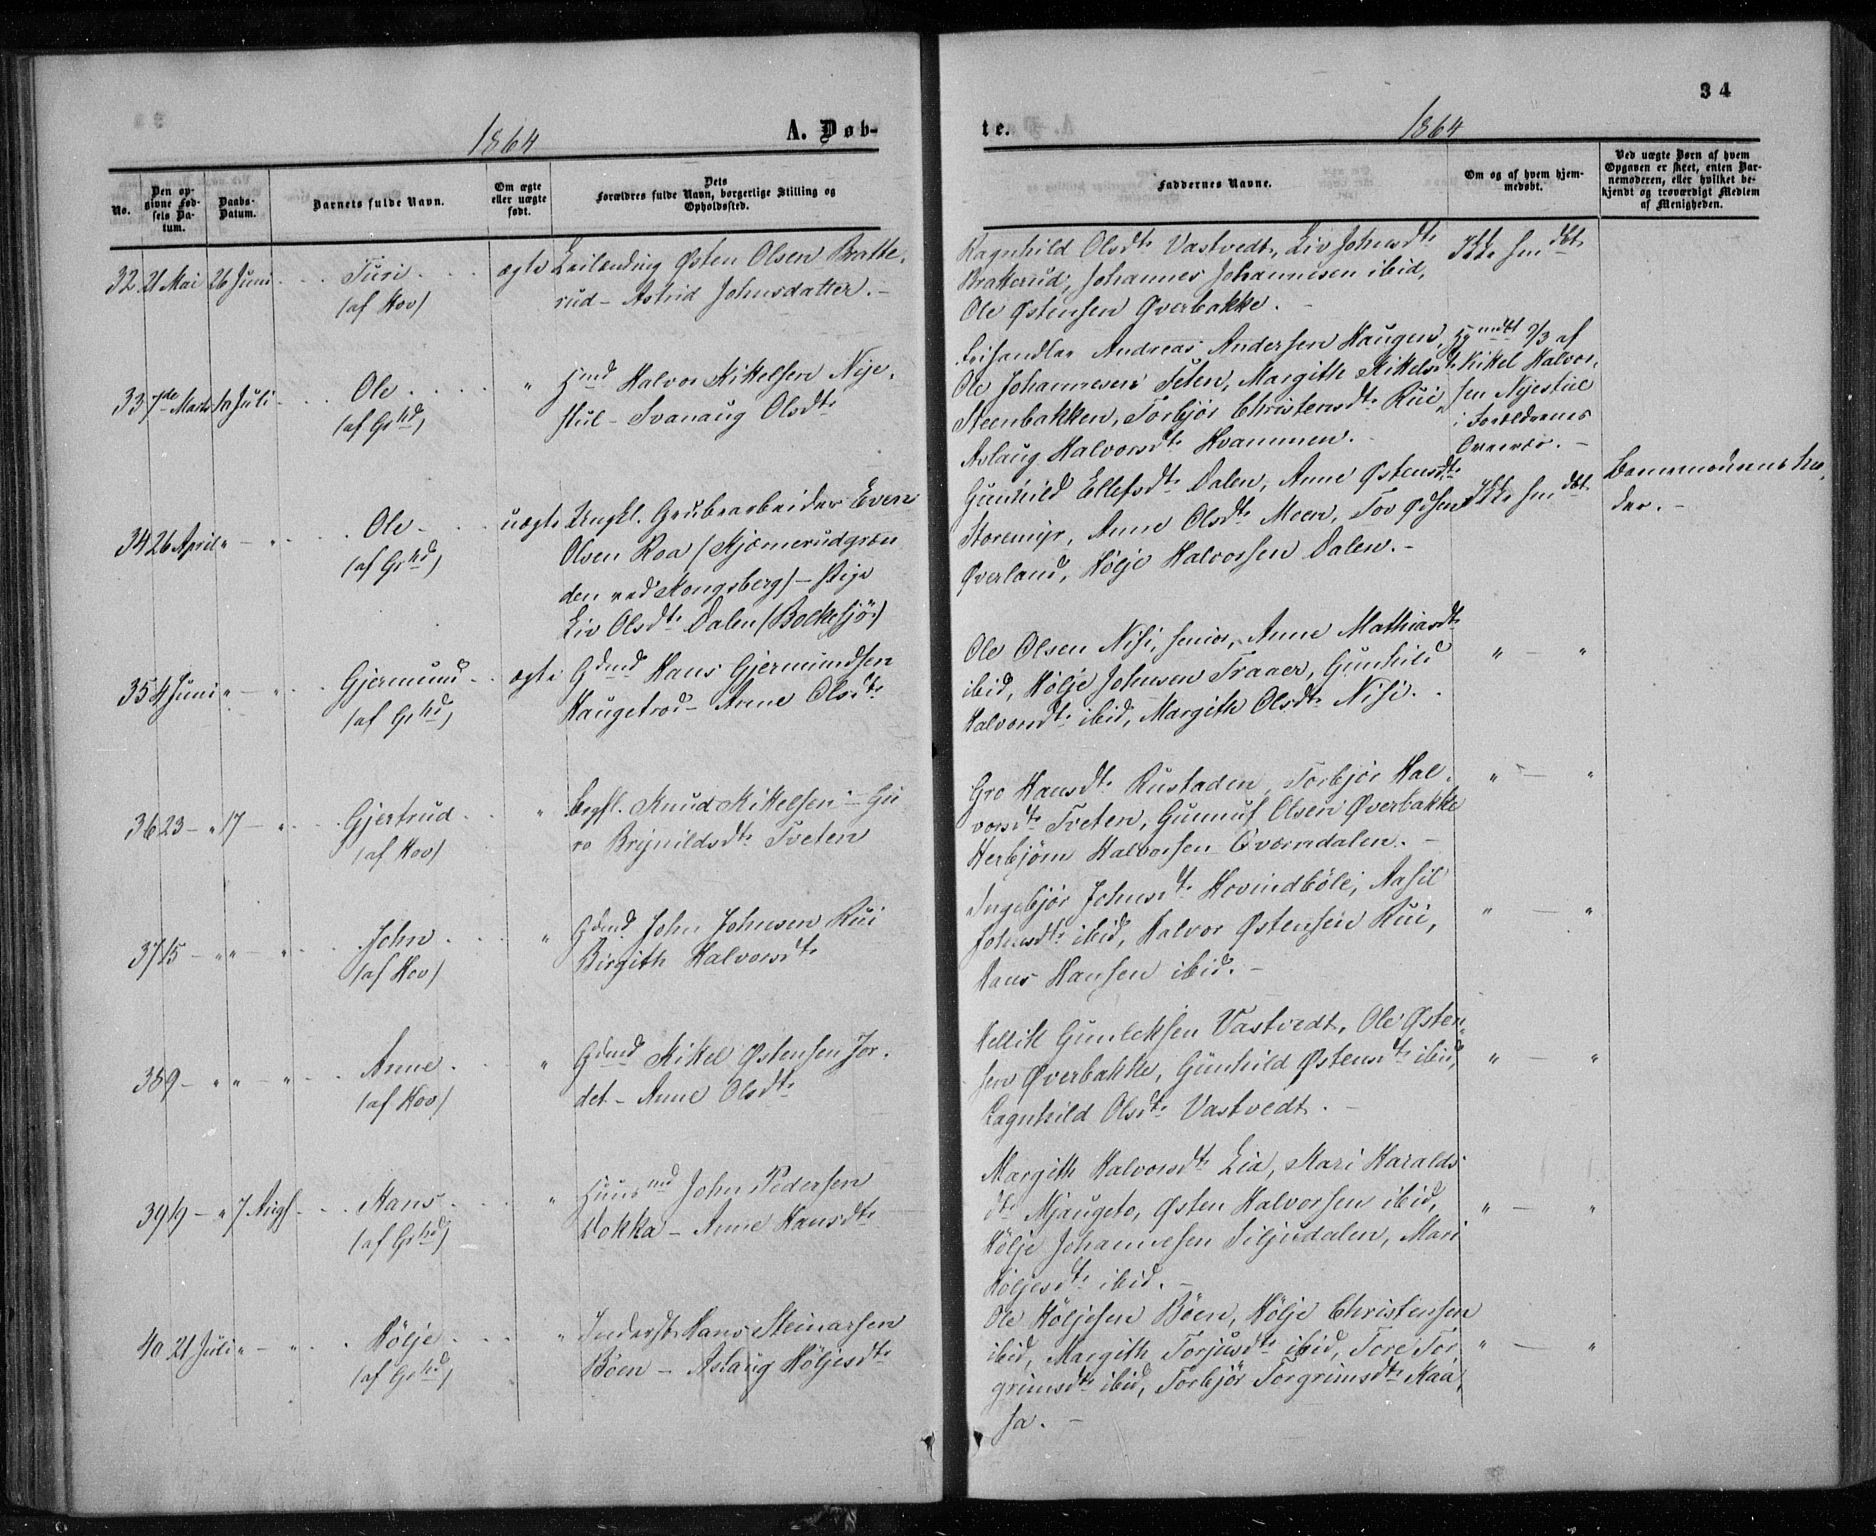 34
1864
A. Døb-
te.
1864
No.
Den op-
givne Fød-
sels Da-
tum.
Daabs-
Datum.
Barnets fulde Navn.
Om ægte
eller uægte
født.
Dets
Forældres fulde Navn, borgerlige Stilling og
Opholdssted.
Faddernes Navne.
Om og af hvem hjem-
medøbt.
Ved uægte Børn af hvem
Opgaven er skeet, enten Bar-
nemoderen, eller hvilket be-
kjendt og troværdigt Medlem
af Menigheden.
32. 21 Mai 26 Juni Turi
(af Hov)
ægte Leilending Østen Olsen Bratte-
rud - Astrid Johnsdatter. -
Ragnhild Olsdtr Vastvedt, Liv Johnsdtr
Bratterud, Johannes Johannesen ibid,
Ole Østensen Øverbakke. -
Ikke hmdbt
33 7de Marts 10 Juli Ole
(af Grhd)
" Hmd Halvor Kittelsen Nije-
stul - Svanaug Olsdtr
Andreas Andersen Haugen,
Ole Johannesen Teten, Margith Kittelsdtr
Steenbakken, Torbjør Christensdtr Rui,
Aslaug Halvorsdtr Hvammen. -
9/3 af
Kittel Halvor-
sen Njestul
i Forældrenes
34 26 April " - " Ole
(af Grhd)
uægte Ungkl. Grubearbeider Even
Olsen Roa (Kjømerudgren
den ved Kongsberg) - Pige
Liv Olsdtr Dalen (Bolkesjø)
Gunhild Ellefsdtr Dalen, Anne Østensdtr
Storemyr, Anne Olsdtr Moen, Tov
Øverland, Hølje Halvorsen Dalen. -
Ikke hmdbt
Barnemoderens Fa-
der. -
35 4 Juni " - " Gjermund
(af Grhd)
ægte Gdmd Hans Gjermundsen
Haugetrod - Anne Olsdtr
Ole Olsen Nisi, senior, Anne Mathiasdtr
ibid, Hølje Johnsen Traaer, Gunhild
Halvorsdtr ibid, Margith Olsdtr Nisi. -
" - "
36 23 - " 17 - " Gjertrud
(af Hov)
" Knud Kittelsen - Gu
ro Brynildsdtr Tveten
Gro Hansdtr Rustaden, Torbjør Hal-
vorsdtr Tveten, Gunnuf Olsen Øverbakke
Herbjørn Halvorsen Qværndalen. -
" - "
37 15 - " " - " John
(af Hov)
" Gdmd John Johnsen Rui
Birgith Halvorsdtr
Ingebjør Johnsdtr Hovindbøle, Aasil
Johnsdtr ibid, Halvor Østensen Rui,
Hans Hansen ibid. -
" - "
38 9 - " " - " Anne
(af Hov)
" Gdmd Kittel Østensen Jor-
det - Anne Olsdtr
Kettil Gunleksen Vastvedt, Ole Østen-
sen Øverbakke, Gunhild Østensdtr ibid,
Ragnhild Olsdtr Vastvedt. -
" - "
39 19 - " 7 Augst Hans
(af Grhd)
" Huusmd John Pedersen
Vokka - Anne Hansdtr
Margith Halvorsdtr Lia, Kari Haralds-
dtr Mjaugeto, Østen Halvorsen ibid,
Hølje Johannesen Siljudalen, Mari
Høljesdtr ibid. -
" - "
40 21 Juli " - " Hølje
(af Grhd)
" Inderst Hans Steinarsen
Bøen - Aslaug Høljesdtr
Ole Høljesen Bøen, Hølje Christensen
ibid, Margith Torjusdtr ibid, Tore Tor-
grimsdtr ibid, Torbjør Torgrimsdtr Kaa-
sa. -
" - "